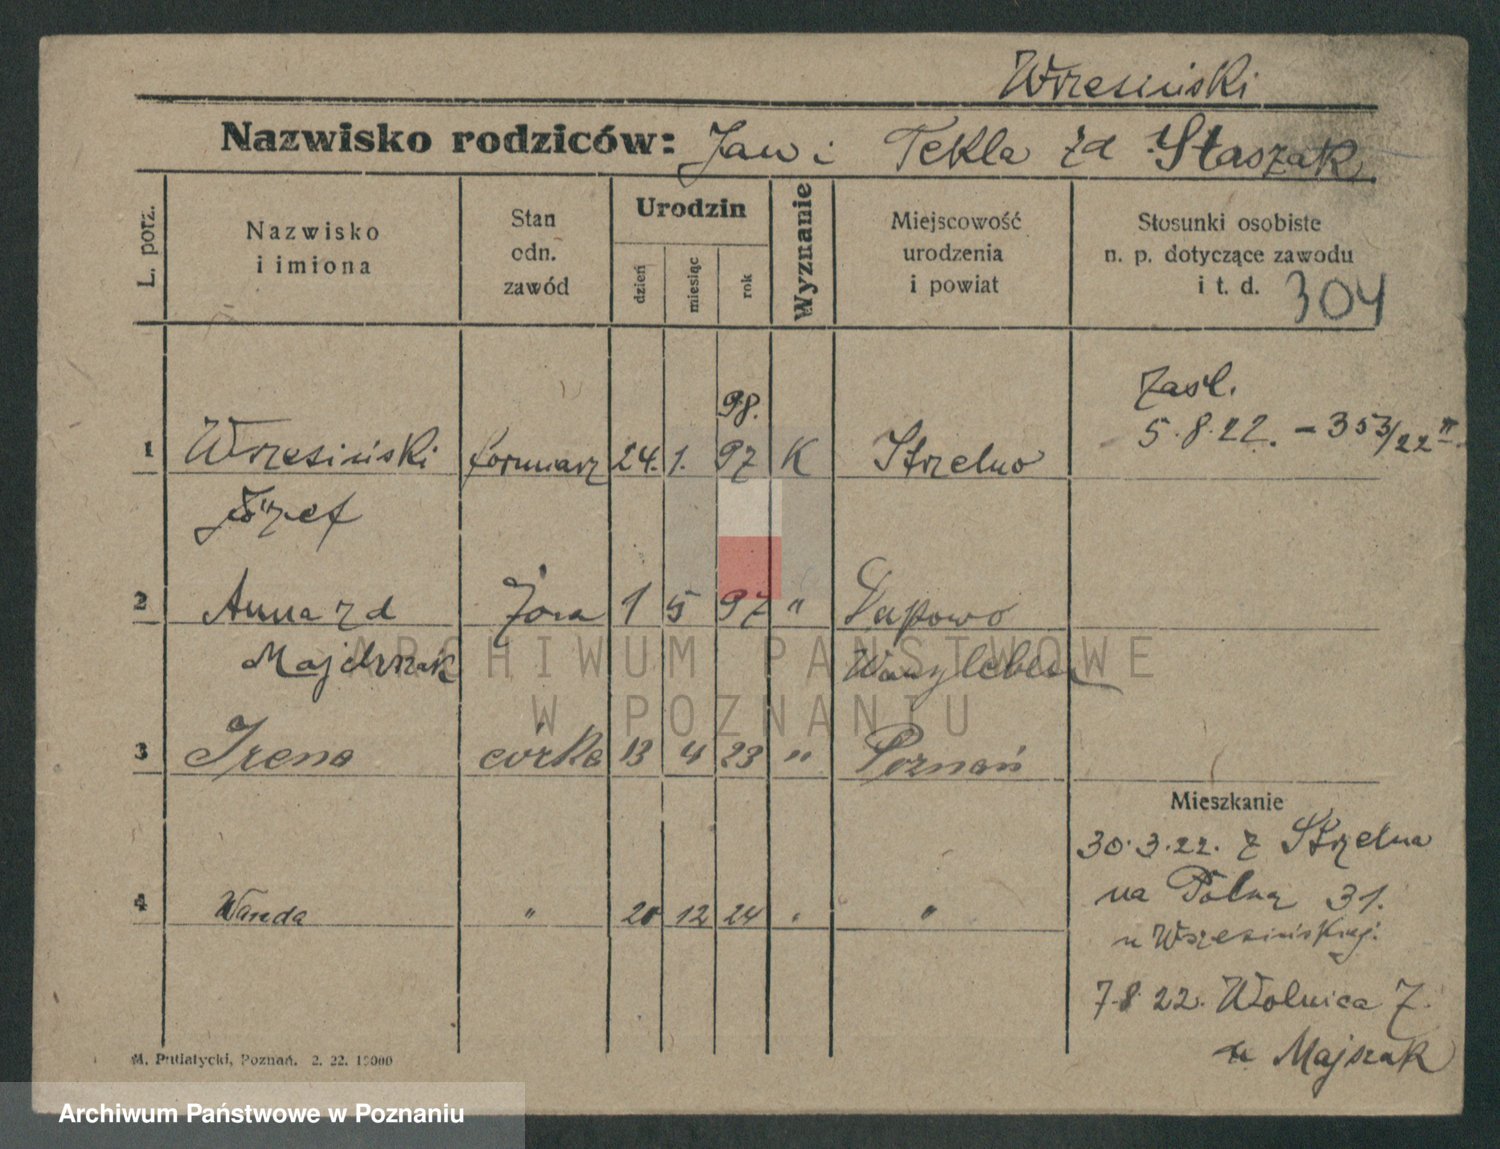 Wrzesiński
Nazwisko rodziców: Jan i Tekla zd Staszak
L. porz.
Nazwisko i imiona
Stan odn. zawód
Urodzin
dzień miesiąc rok
Wyznanie
Miejscowość urodzenia i powiat
Stosunki osobiste
n. p. dotyczące zawodu
i t. d. 304
Zaśl.
98. 5.8.22. – 353/22 II.
1 Wrzesiński formiarz 24. 1. 97 K Strzelno
Józef
2 Anna zd żona 1 5 97 " Dąpowo
Majdrzak
3 Irena córka 13 4 23 " Poznań
Mieszkanie
30.3.22. z Strzelna
na Polną 31.
u Wrzesińskiej.
4 Wanda " 20 12 24 " "
7.8.22. Wolnica 7.
u Majszak
M. Putiatycki, Poznań. 2. 22. 15000
ARCHIWUM PAŃSTWOWE
W POZNANIU
Archiwum Państwowe w Poznaniu